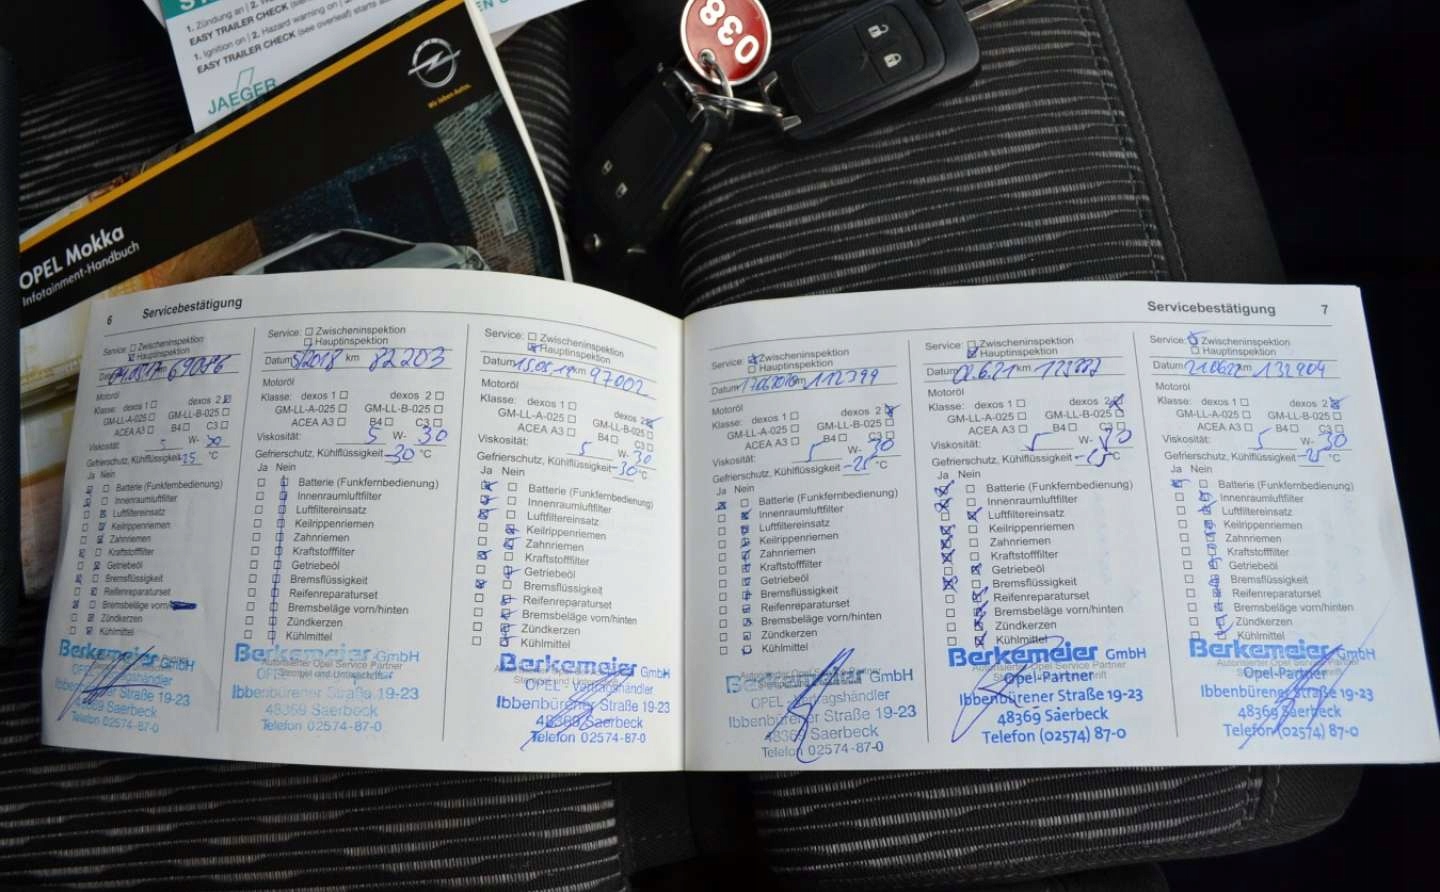 1. Zündung an | 2.
EASY TRAILER CHECK
1. Ignition on | 2. Hazard warning on |
EASY TRAILER CHECK (see overleaf) starts
JAEGER
038
Wir leben Autos.
OPEL Mokka
Infotainment-Handbuch
6 Servicebestätigung
Service: Zwischeninspektion
Hauptinspektion
69046
Motoröl
Klasse: dexos 1 dexos 2
GM-LL-A-025 GM-LL-B-025
ACEA A3 B4 C3
Viskosität: 5 W- 30
Gefrierschutz, Kühlflüssigkeit -25 °C
Ja Nein
Batterie (Funkfernbedienung)
Innenraumluftfilter
Luftfiltereinsatz
Keilrippenriemen
Zahnriemen
Kraftstofffilter
Getriebeöl
Bremsflüssigkeit
Reifenreparaturset
Bremsbeläge vorn/
Zündkerzen
Kühlmittel
Berkemeier GmbH
OPEL - Vertragshändler
Ibbenbürener Straße 19-23
48369 Saerbeck
Telefon 02574-87-0
Service: Zwischeninspektion
Hauptinspektion
Datum 5/2018 km 82203
Motoröl
Klasse: dexos 1 dexos 2
GM-LL-A-025 GM-LL-B-025
ACEA A3 B4 C3
Viskosität: 5 W- 30
Gefrierschutz, Kühlflüssigkeit -30 °C
Ja Nein
Batterie (Funkfernbedienung)
Innenraumluftfilter
Luftfiltereinsatz
Keilrippenriemen
Zahnriemen
Kraftstofffilter
Getriebeöl
Bremsflüssigkeit
Reifenreparaturset
Bremsbeläge vorn/hinten
Zündkerzen
Kühlmittel
Berkemeier GmbH
Autorisierter Opel Service Partner
Stempel und Unterschrift
Ibbenbürener Straße 19-23
48369 Saerbeck
Telefon 02574-87-0
Service: Zwischeninspektion
Hauptinspektion
Datum 15.05.19 km 97002
Motoröl
Klasse: dexos 1 dexos 2
GM-LL-A-025 GM-LL-B-025
ACEA A3 B4 C3
Viskosität: 5 W- 30
Gefrierschutz, Kühlflüssigkeit -30 °C
Ja Nein
Batterie (Funkfernbedienung)
Innenraumluftfilter
Luftfiltereinsatz
Keilrippenriemen
Zahnriemen
Kraftstofffilter
Getriebeöl
Bremsflüssigkeit
Reifenreparaturset
Bremsbeläge vorn/hinten
Zündkerzen
Kühlmittel
Berkemeier GmbH
OPEL - Vertragshändler
Ibbenbürener Straße 19-23
48369 Saerbeck
Telefon 02574-87-0
Servicebestätigung 7
Service: Zwischeninspektion
Hauptinspektion
Datum km 112399
Motoröl
Klasse: dexos 1 dexos 2
GM-LL-A-025 GM-LL-B-025
ACEA A3 B4 C3
Viskosität: 5 W- 30
Gefrierschutz, Kühlflüssigkeit -25 °C
Ja Nein
Batterie (Funkfernbedienung)
Innenraumluftfilter
Luftfiltereinsatz
Keilrippenriemen
Zahnriemen
Kraftstofffilter
Getriebeöl
Bremsflüssigkeit
Reifenreparaturset
Bremsbeläge vorn/hinten
Zündkerzen
Kühlmittel
Berkemeier GmbH
OPEL - Vertragshändler
Ibbenbürener Straße 19-23
48369 Saerbeck
Telefon 02574-87-0
Service: Zwischeninspektion
Hauptinspektion
Datum km
Motoröl
Klasse: dexos 1 dexos 2
GM-LL-A-025 GM-LL-B-025
ACEA A3 B4 C3
Viskosität: 5 W- 30
Gefrierschutz, Kühlflüssigkeit °C
Ja Nein
Batterie (Funkfernbedienung)
Innenraumluftfilter
Luftfiltereinsatz
Keilrippenriemen
Zahnriemen
Kraftstofffilter
Getriebeöl
Bremsflüssigkeit
Reifenreparaturset
Bremsbeläge vorn/hinten
Zündkerzen
Kühlmittel
Berkemeier GmbH
Autorisierter Opel Service Partner
Opel-Partner
Ibbenbürener Straße 19-23
48369 Saerbeck
Telefon (02574) 87-0
Service: Zwischeninspektion
Hauptinspektion
Datum 21.06.22 km 132904
Motoröl
Klasse: dexos 1 dexos 2
GM-LL-A-025 GM-LL-B-025
ACEA A3 B4 C3
Viskosität: 5 W- 30
Gefrierschutz, Kühlflüssigkeit -25 °C
Ja Nein
Batterie (Funkfernbedienung)
Innenraumluftfilter
Luftfiltereinsatz
Keilrippenriemen
Zahnriemen
Kraftstofffilter
Getriebeöl
Bremsflüssigkeit
Reifenreparaturset
Bremsbeläge vorn/hinten
Zündkerzen
Kühlmittel
Berkemeier GmbH
Autorisierter Opel Service Partner
Opel-Partner
Ibbenbürener Straße 19-23
48369 Saerbeck
Telefon (02574) 87-0